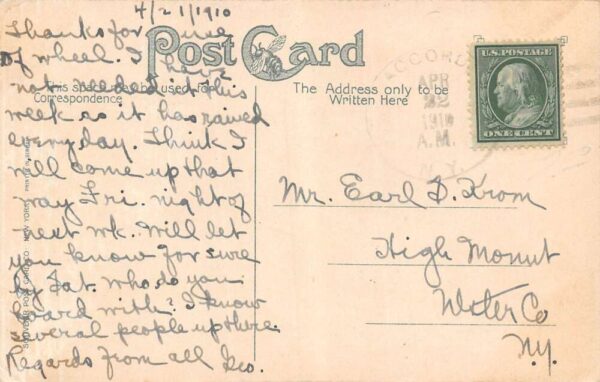 4/21/1910
Thanks for use
of wheel. I have
not needed it this
week as it has rained
every day. Think I
will come up that
way Fri. night of
next wk. Will let
you know for sure
by Sat. who do you
board with? I know
several people up there.
Regards from all Geo.
Post Card
This space may be used for
Correspondence
The Address only to be
Written Here
ACCORD
APR
22
1910
A.M.
N.Y.
U.S. POSTAGE
ONE CENT
Mr. Earl D. Krom
High Mount
Ulster Co
N.Y.
SOUVENIR POST CARD CO. NEW YORK